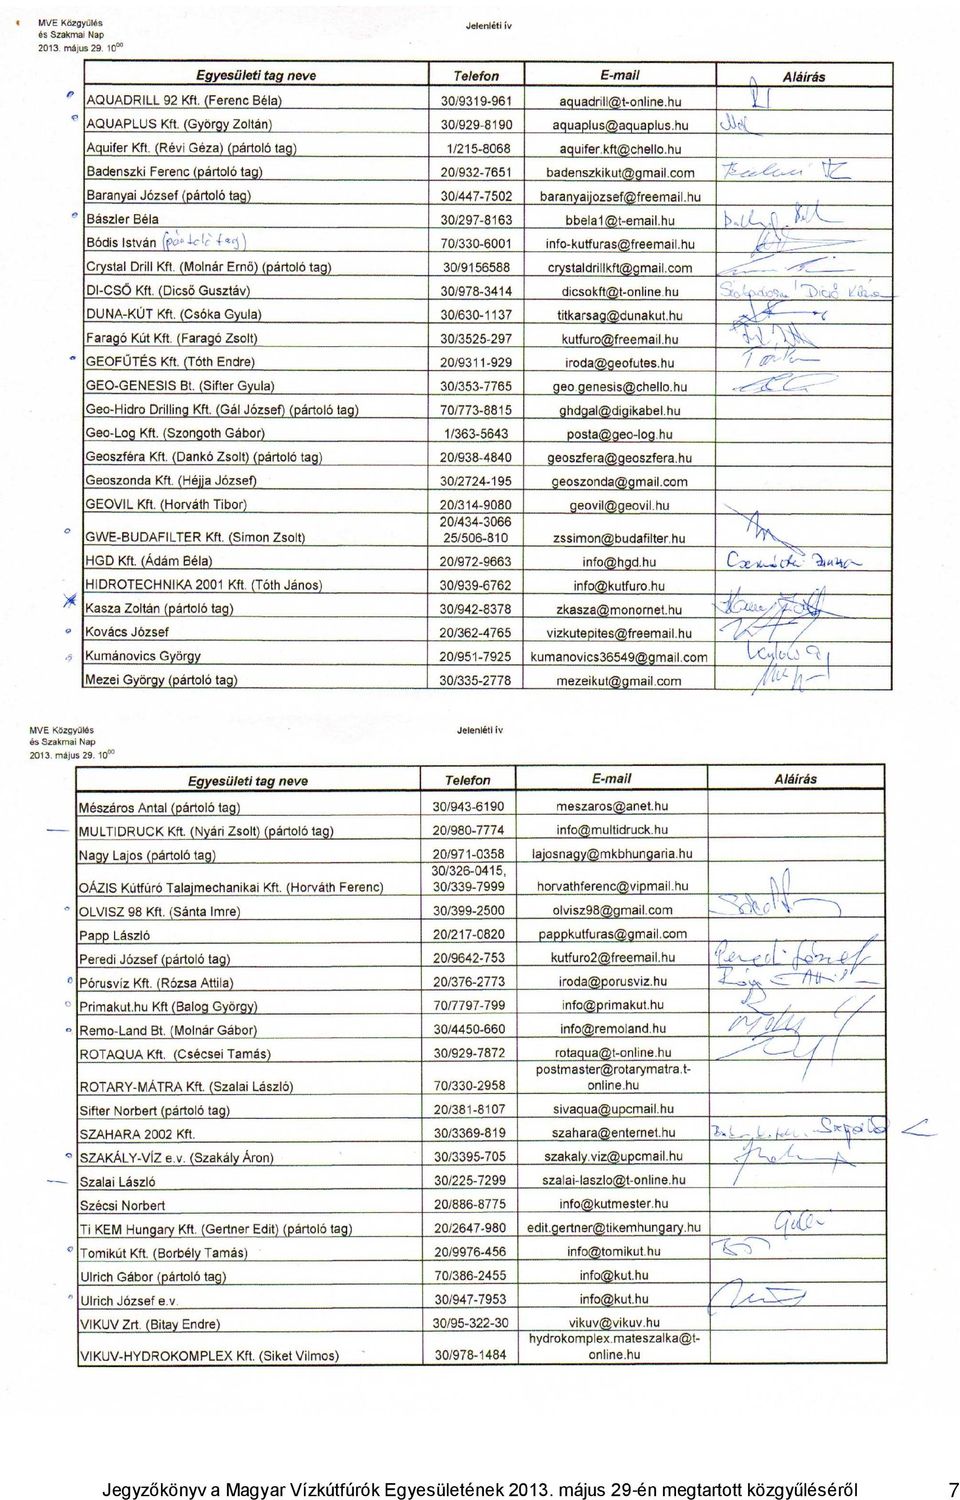 MVE Közgyűlés
és Szakmai Nap
2013. május 29. 10⁰⁰
Jelenléti ív
Egyesületi tag neve Telefon E-mail Aláírás
AQUADRILL 92 Kft. (Ferenc Béla) 30/9319-961 aquadrill@t-online.hu
AQUAPLUS Kft. (György Zoltán) 30/929-8190 aquaplus@aquaplus.hu
Aquifer Kft. (Révi Géza) (pártoló tag) 1/215-8068 aquifer.kft@chello.hu
Badenszki Ferenc (pártoló tag) 20/932-7651 badenszkikut@gmail.com
Baranyai József (pártoló tag) 30/447-7502 baranyaijozsef@freemail.hu
Bászler Béla 30/297-8163 bbela1@t-email.hu
Bódis István (pártoló tag) 70/330-6001 info-kutfuras@freemail.hu
Crystal Drill Kft. (Molnár Ernő) (pártoló tag) 30/9156588 crystaldrillkft@gmail.com
DI-CSŐ Kft. (Dicső Gusztáv) 30/978-3414 dicsokft@t-online.hu
DUNA-KÚT Kft. (Csóka Gyula) 30/630-1137 titkarsag@dunakut.hu
Faragó Kút Kft. (Faragó Zsolt) 30/3525-297 kutfuro@freemail.hu
GEOFŰTÉS Kft. (Tóth Endre) 20/9311-929 iroda@geofutes.hu
GEO-GENESIS Bt. (Sifter Gyula) 30/353-7765 geo.genesis@chello.hu
Geo-Hidro Drilling Kft. (Gál József) (pártoló tag) 70/773-8815 ghdgal@digikabel.hu
Geo-Log Kft. (Szongoth Gábor) 1/363-5643 posta@geo-log.hu
Geoszféra Kft. (Dankó Zsolt) (pártoló tag) 20/938-4840 geoszfera@geoszfera.hu
Geoszonda Kft. (Héjja József) 30/2724-195 geoszonda@gmail.com
GEOVIL Kft. (Horváth Tibor) 20/314-9080 geovil@geovil.hu
20/434-3066
GWE-BUDAFILTER Kft. (Simon Zsolt) 25/506-810 zssimon@budafilter.hu
HGD Kft. (Ádám Béla) 20/972-9663 info@hgd.hu
HIDROTECHNIKA 2001 Kft. (Tóth János) 30/939-6762 info@kutfuro.hu
Kasza Zoltán (pártoló tag) 30/942-8378 zkasza@monornet.hu
Kovács József 20/362-4765 vizkutepites@freemail.hu
Kumánovics György 20/951-7925 kumanovics36549@gmail.com
Mezei György (pártoló tag) 30/335-2778 mezeikut@gmail.com
MVE Közgyűlés
és Szakmai Nap
2013. május 29. 10⁰⁰
Jelenléti ív
Egyesületi tag neve Telefon E-mail Aláírás
Mészáros Antal (pártoló tag) 30/943-6190 meszaros@anet.hu
MULTIDRUCK Kft. (Nyári Zsolt) (pártoló tag) 20/980-7774 info@multidruck.hu
Nagy Lajos (pártoló tag) 20/971-0358 lajosnagy@mkbhungaria.hu
30/326-0415,
OÁZIS Kútfúró Talajmechanikai Kft. (Horváth Ferenc) 30/339-7999 horvathferenc@vipmail.hu
OLVISZ 98 Kft. (Sánta Imre) 30/399-2500 olvisz98@gmail.com
Papp László 20/217-0820 pappkutfuras@gmail.com
Peredi József (pártoló tag) 20/9642-753 kutfuro2@freemail.hu Peredi József
Pórusvíz Kft. (Rózsa Attila) 20/376-2773 iroda@porusviz.hu
Primakut.hu Kft (Balog György) 70/7797-799 info@primakut.hu
Remo-Land Bt. (Molnár Gábor) 30/4450-660 info@remoland.hu
ROTAQUA Kft. (Csécsei Tamás) 30/929-7872 rotaqua@t-online.hu
postmaster@rotarymatra.t-
ROTARY-MÁTRA Kft. (Szalai László) 70/330-2958 online.hu
Sifter Norbert (pártoló tag) 20/381-8107 sivaqua@upcmail.hu
SZAHARA 2002 Kft. 30/3369-819 szahara@enternet.hu
SZAKÁLY-VÍZ e.v. (Szakály Áron) 30/3395-705 szakaly.viz@upcmail.hu
Szalai László 30/225-7299 szalai-laszlo@t-online.hu
Szécsi Norbert 20/886-8775 info@kutmester.hu
Ti KEM Hungary Kft. (Gertner Edit) (pártoló tag) 20/2647-980 edit.gertner@tikemhungary.hu
Tomikút Kft. (Borbély Tamás) 20/9976-456 info@tomikut.hu
Ulrich Gábor (pártoló tag) 70/386-2455 info@kut.hu
Ulrich József e.v. 30/947-7953 info@kut.hu
VIKUV Zrt. (Bitay Endre) 30/95-322-30 vikuv@vikuv.hu
hydrokomplex.mateszalka@t-
VIKUV-HYDROKOMPLEX Kft. (Siket Vilmos) 30/978-1484 online.hu
Jegyzőkönyv a Magyar Vízkútfúrók Egyesületének 2013. május 29-én megtartott közgyűléséről 7